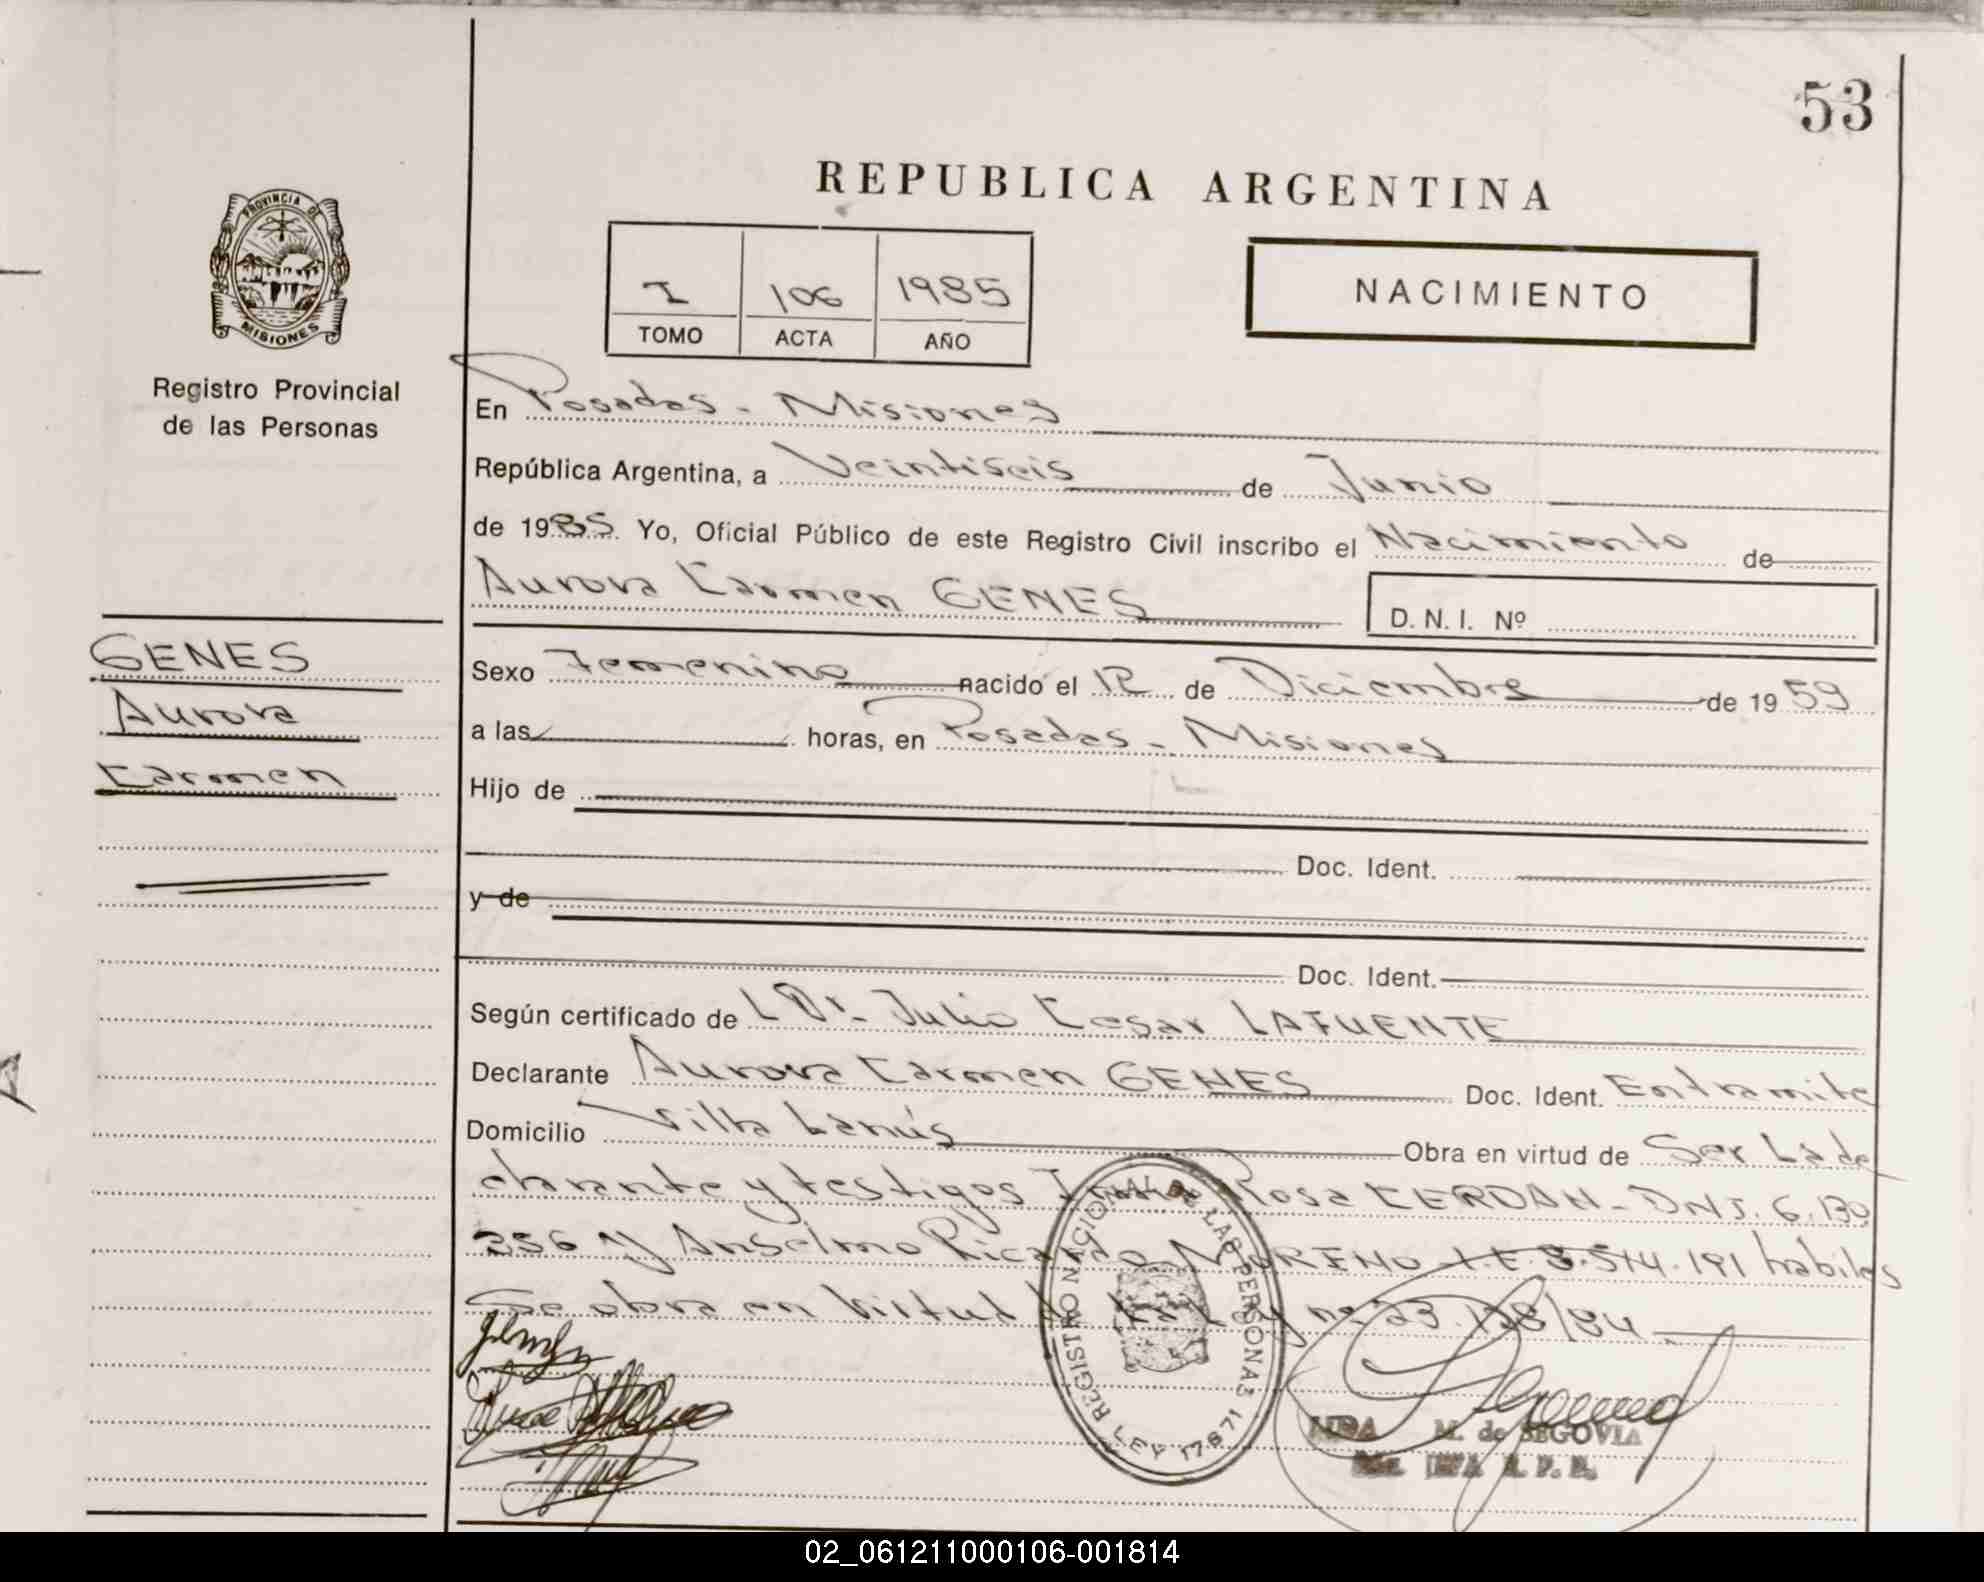 53
REPUBLICA ARGENTINA
PROVINCIA DE
MISIONES
Registro Provincial
de las Personas
I 106 1985
TOMO ACTA AÑO
NACIMIENTO
En Posadas - Misiones
República Argentina, a Veintiseis de Junio
de 1985. Yo, Oficial Público de este Registro Civil inscribo el Nacimiento de
Aurora Carmen GENES
D.N.I. Nº
GENES
Aurora
Carmen
Sexo Femenino nacido el 12 de Diciembre de 1959
a las horas, en Posadas - Misiones
Hijo de
Doc. Ident.
y de
Doc. Ident.
Según certificado de L Dr. Julio Cesar LAFUENTE
Declarante Aurora Carmen GENES Doc. Ident. Entramite
Domicilio Villa Lanús Obra en virtud de Ser La de
clarante y testigos Rosa CERDAN - DNI. 6.130
356 y Anselmo Ricardo MORENO I.E 3.514.191 habiles
Se obra en Virtud Ley nº 23.128/84
REGISTRO NACIONAL DE LAS PERSONAS
LEY 17671
M. de SEGOVIA
02_061211000106-001814